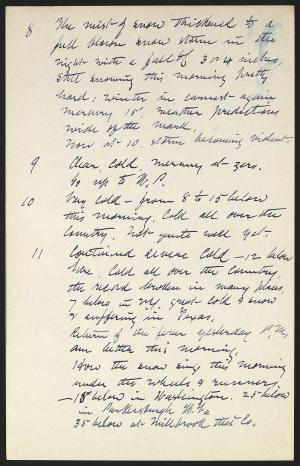 8 The mist of snow thickened to a
full blown snow storm in the
night with a fall of 3 or 4 inches.
Still snowing this morning pretty
hard; winter in earnest again
mercury 15°. Weather predictions
wide of the mark.
Now at 10. storm becoming violent.
9 Clear, cold, mercury at zero.
Go up to W.P.
10 Very cold - from 8 to 15 below
this morning. Cold all over the
Country. Not quite well yet.
11 Continued severe cold - 12 below
here. Cold all over the Country,
the record broken in many places.
7 below in N.Y. great cold & snow
& suffering in Texas.
Return of the fever yesterday P.M.
am better this morning.
How the snow sings this morning
under the wheels & runners.
- 15 below in Washington. 25 below
in Parkersburgh W. Va.
35 below at Millbrook this Co.